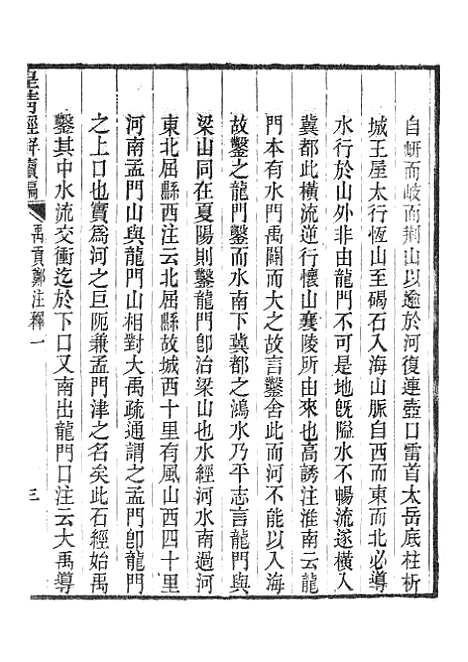 自岍而岐而荆山以逾於河復連壺口雷首太岳底柱析
城王屋太行恆山至碣石入海山脈自西而東而北必導
水行於山外非由龍門不可是地旣隘水不暢流遂橫入
冀都此橫流逆行懷山襄陵所由來也高誘注淮南云龍
門本有水門禹闢而大之故言鑿舍此而河不能以入海
故鑿之龍門鑿而水南下冀都之鴻水乃平志言龍門與
梁山同在夏陽則鑿龍門卽治梁山也水經河水南過河
東北屈縣西注云北屈縣故城西十里有風山西四十里
河南孟門山與龍門山相對大禹疏通謂之孟門卽龍門
之上口也實爲河之巨阨兼孟門津之名矣此石經始禹
鑿其中水流交衝迄於下口又南出龍門口注云大禹導
皇淸經解續編
禹貢鄭注釋一
三